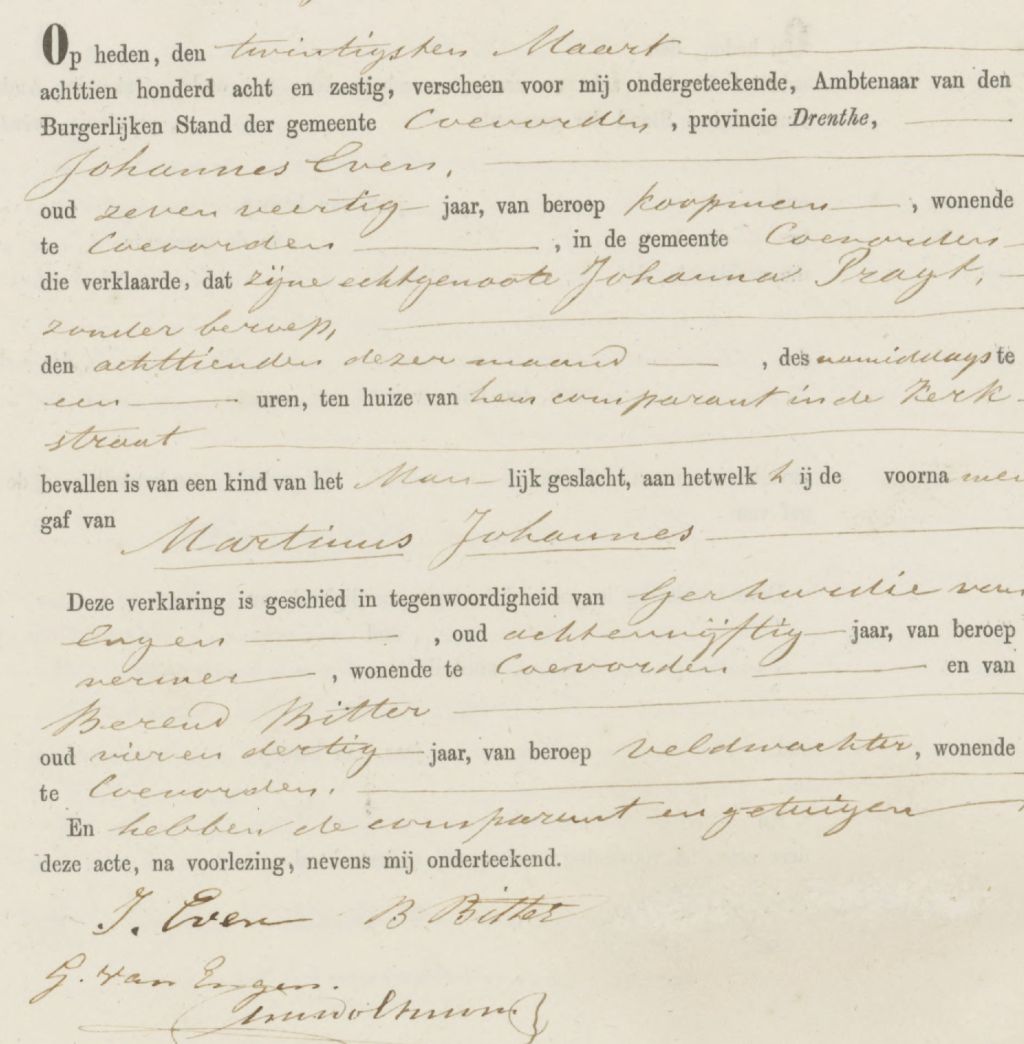 Op heden, den twintigsten Maart
achttien honderd acht en zestig, verscheen voor mij ondergeteekende, Ambtenaar van den
Burgerlijken Stand der gemeente Coevorden, provincie Drenthe,
Johannes Even,
oud zeven veertig jaar, van beroep koopman, wonende
te Coevorden, in de gemeente Coevorden
die verklaarde, dat zijne echtgenoote Johanna Pragt,
zonder beroep,
den achttienden dezer maand, des namiddags te
een uren, ten huize van hem comparant in de Kerk
straat
bevallen is van een kind van het Man lijk geslacht, aan hetwelk h ij de voorna men
gaf van Martinus Johannes
Deze verklaring is geschied in tegenwoordigheid van Gerhardie van
Engen, oud achtenvijftig jaar, van beroep
verwer, wonende te Coevorden en van
Berend Bitter
oud vier en dertig jaar, van beroep veldwachter, wonende
te Coevorden.
En hebben de comparant en getuigen
deze acte, na voorlezing, nevens mij onderteekend.
J. Even B Bitter
G. van Engen.